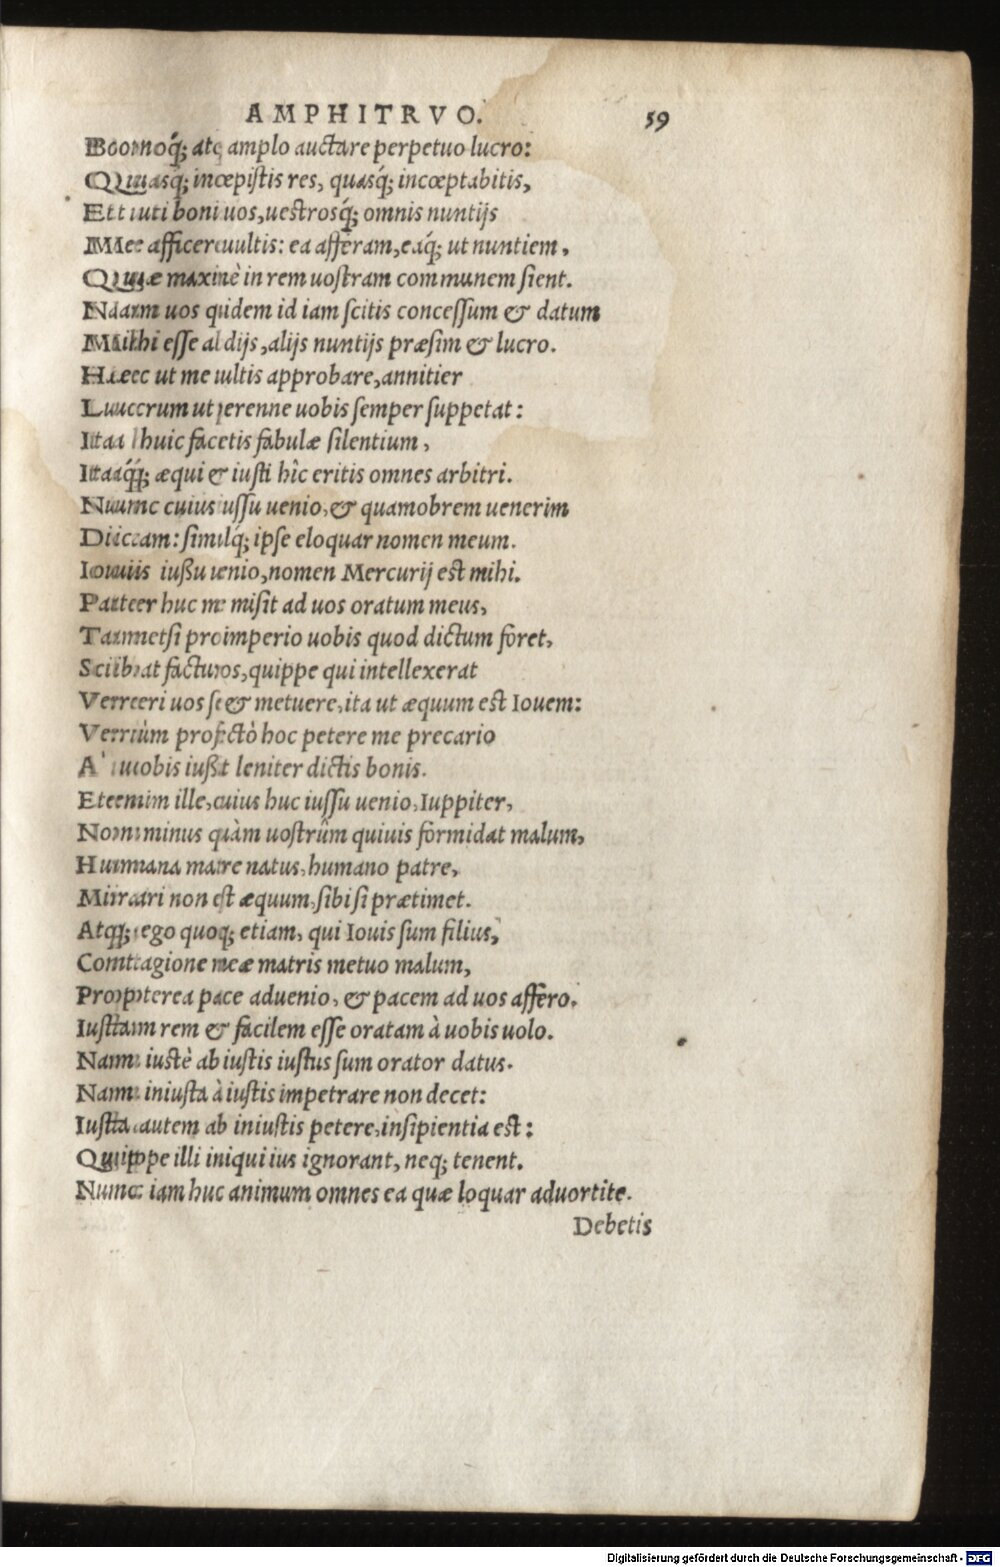 AMPHITRVO. 59
Bonoq́; atq; amplo auctare perpetuo lucro:
Quasq́; incœpistis res, quasq́; incœptabitis,
Et uti boni uos, uestrosq́; omnis nuntijs
Me afficere uultis: ea afferam, eaq́; ut nuntiem,
Quæ maximè in rem uostram communem sient.
Nam uos quidem id iam scitis concessum & datum
Mihi esse ab dijs, alijs nuntijs præsim & lucro.
Hæc ut me uultis approbare, annitier
Lucrum ut perenne uobis semper suppetat:
Ita huic facetis fabulæ silentium,
Itaq́; æqui & iusti hîc eritis omnes arbitri.
Nunc cuius iussu uenio, & quamobrem uenerim
Dicam: simulq́; ipse eloquar nomen meum.
Iouis iußu uenio, nomen Mercurij est mihi.
Pater huc me misit ad uos oratum meus,
Tametsi pro imperio uobis quod dictum foret,
Scibat facturos, quippe qui intellexerat
Vereri uos se & metuere, ita ut æquum est Iouem:
Verùm profectò hoc petere me precario
A uobis iußit leniter dictis bonis.
Etenim ille, cuius huc iussu uenio, Iuppiter,
Non minus quàm uostrûm quiuis formidat malum,
Humana matre natus, humano patre,
Mirari non est æquum, sibi si prætimet.
Atq; ego quoq; etiam, qui Iouis sum filius,
Contagione meæ matris metuo malum,
Propterea pace aduenio, & pacem ad uos affero.
Iustam rem & facilem esse oratam à uobis uolo.
Nam iustè ab iustis iustus sum orator datus.
Nam iniusta à iustis impetrare non decet:
Iusta autem ab iniustis petere, insipientia est:
Quippe illi iniqui ius ignorant, neq; tenent.
Nunc iam huc animum omnes ea quæ loquar aduortite.
Debetis
Digitalisierung gefördert durch die Deutsche Forschungsgemeinschaft - DFG